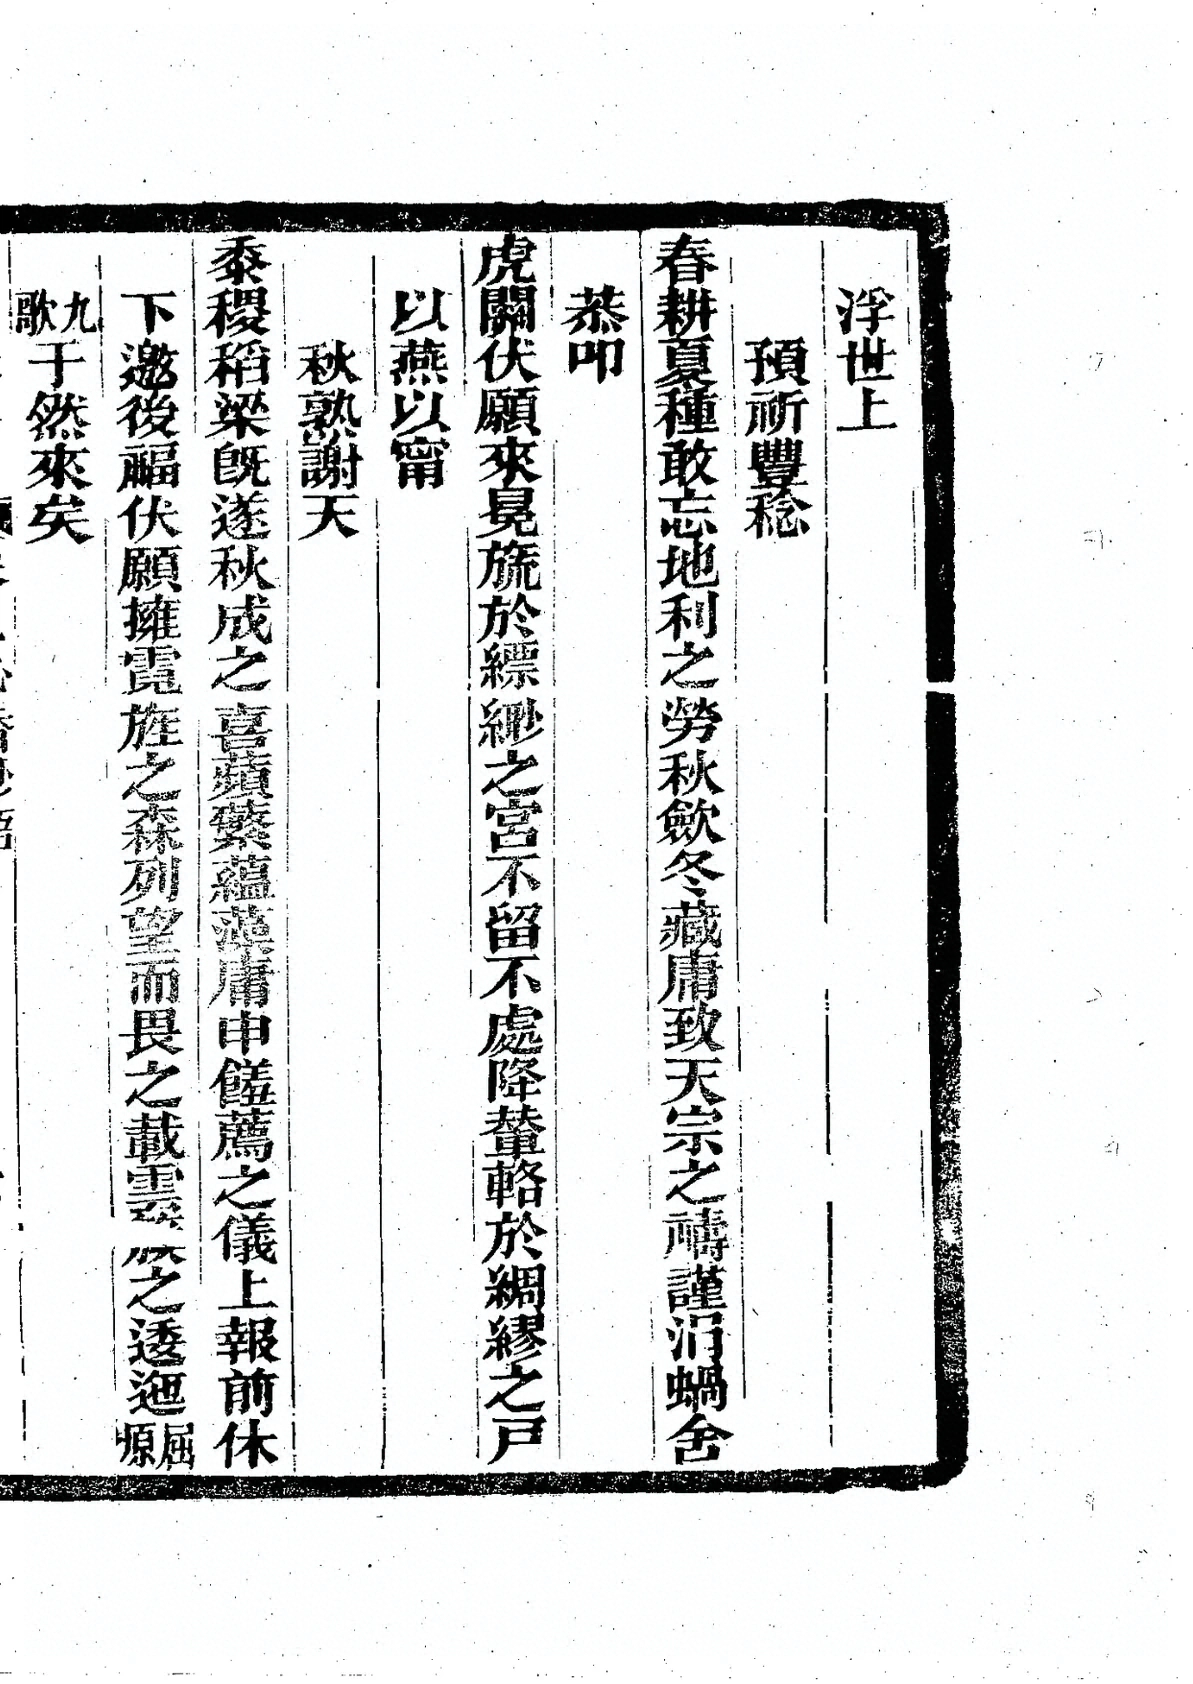 浮世上
預祈豐稔
春耕夏種敢忘地利之勞秋歛冬藏庸致天宗之禱謹涓蝸舍
恭叩
虎關伏願來晃旒於縹緲之宮不留不處降輦輅於綢繆之戸
以燕以甯
秋熟謝天
黍稷稻粱旣遂秋成之喜蘋蘩蘊藻庸申饈薦之儀上報前休
下邀後福伏願擁霓旌之森列望而畏之載雲之逶迤屈原
九歌于然來矣